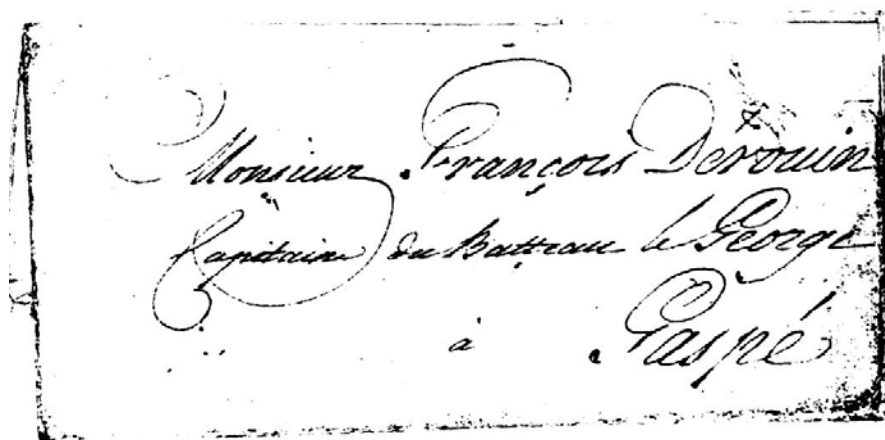 Monsieur François Derouin
Capitaine du Batteau le George
à Gaspé